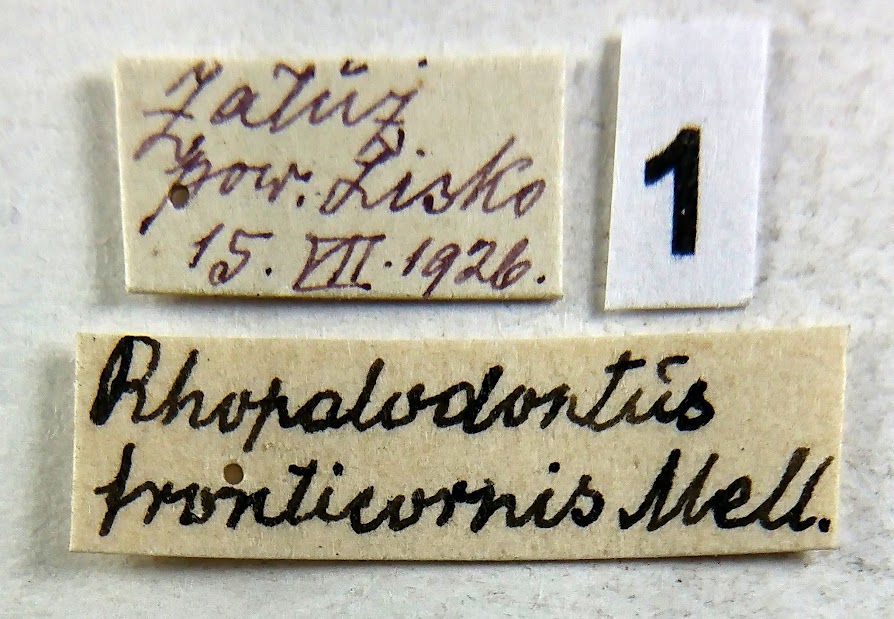 Załūż
pow. Lisko
15. VII. 1926.
1
Rhopalodontūs
fronticornis Mell.